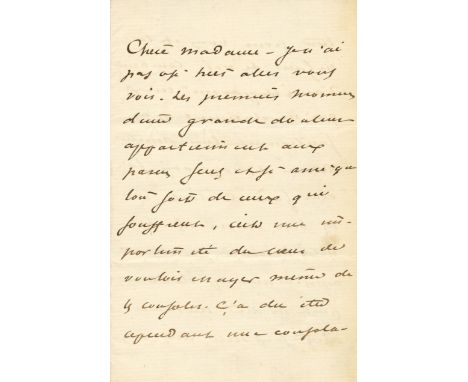 Chère madame – je n'ai
pas osé hier aller vous
voir. Les premiers moments
d'une grande douleur
appartiennent aux
parens seuls et si ami que
l'on soit de ceux qui
souffrent, c'est une im-
portunité du cœur de
vouloir essayer même de
les consoler. Ç'a du être
cependant une consola-